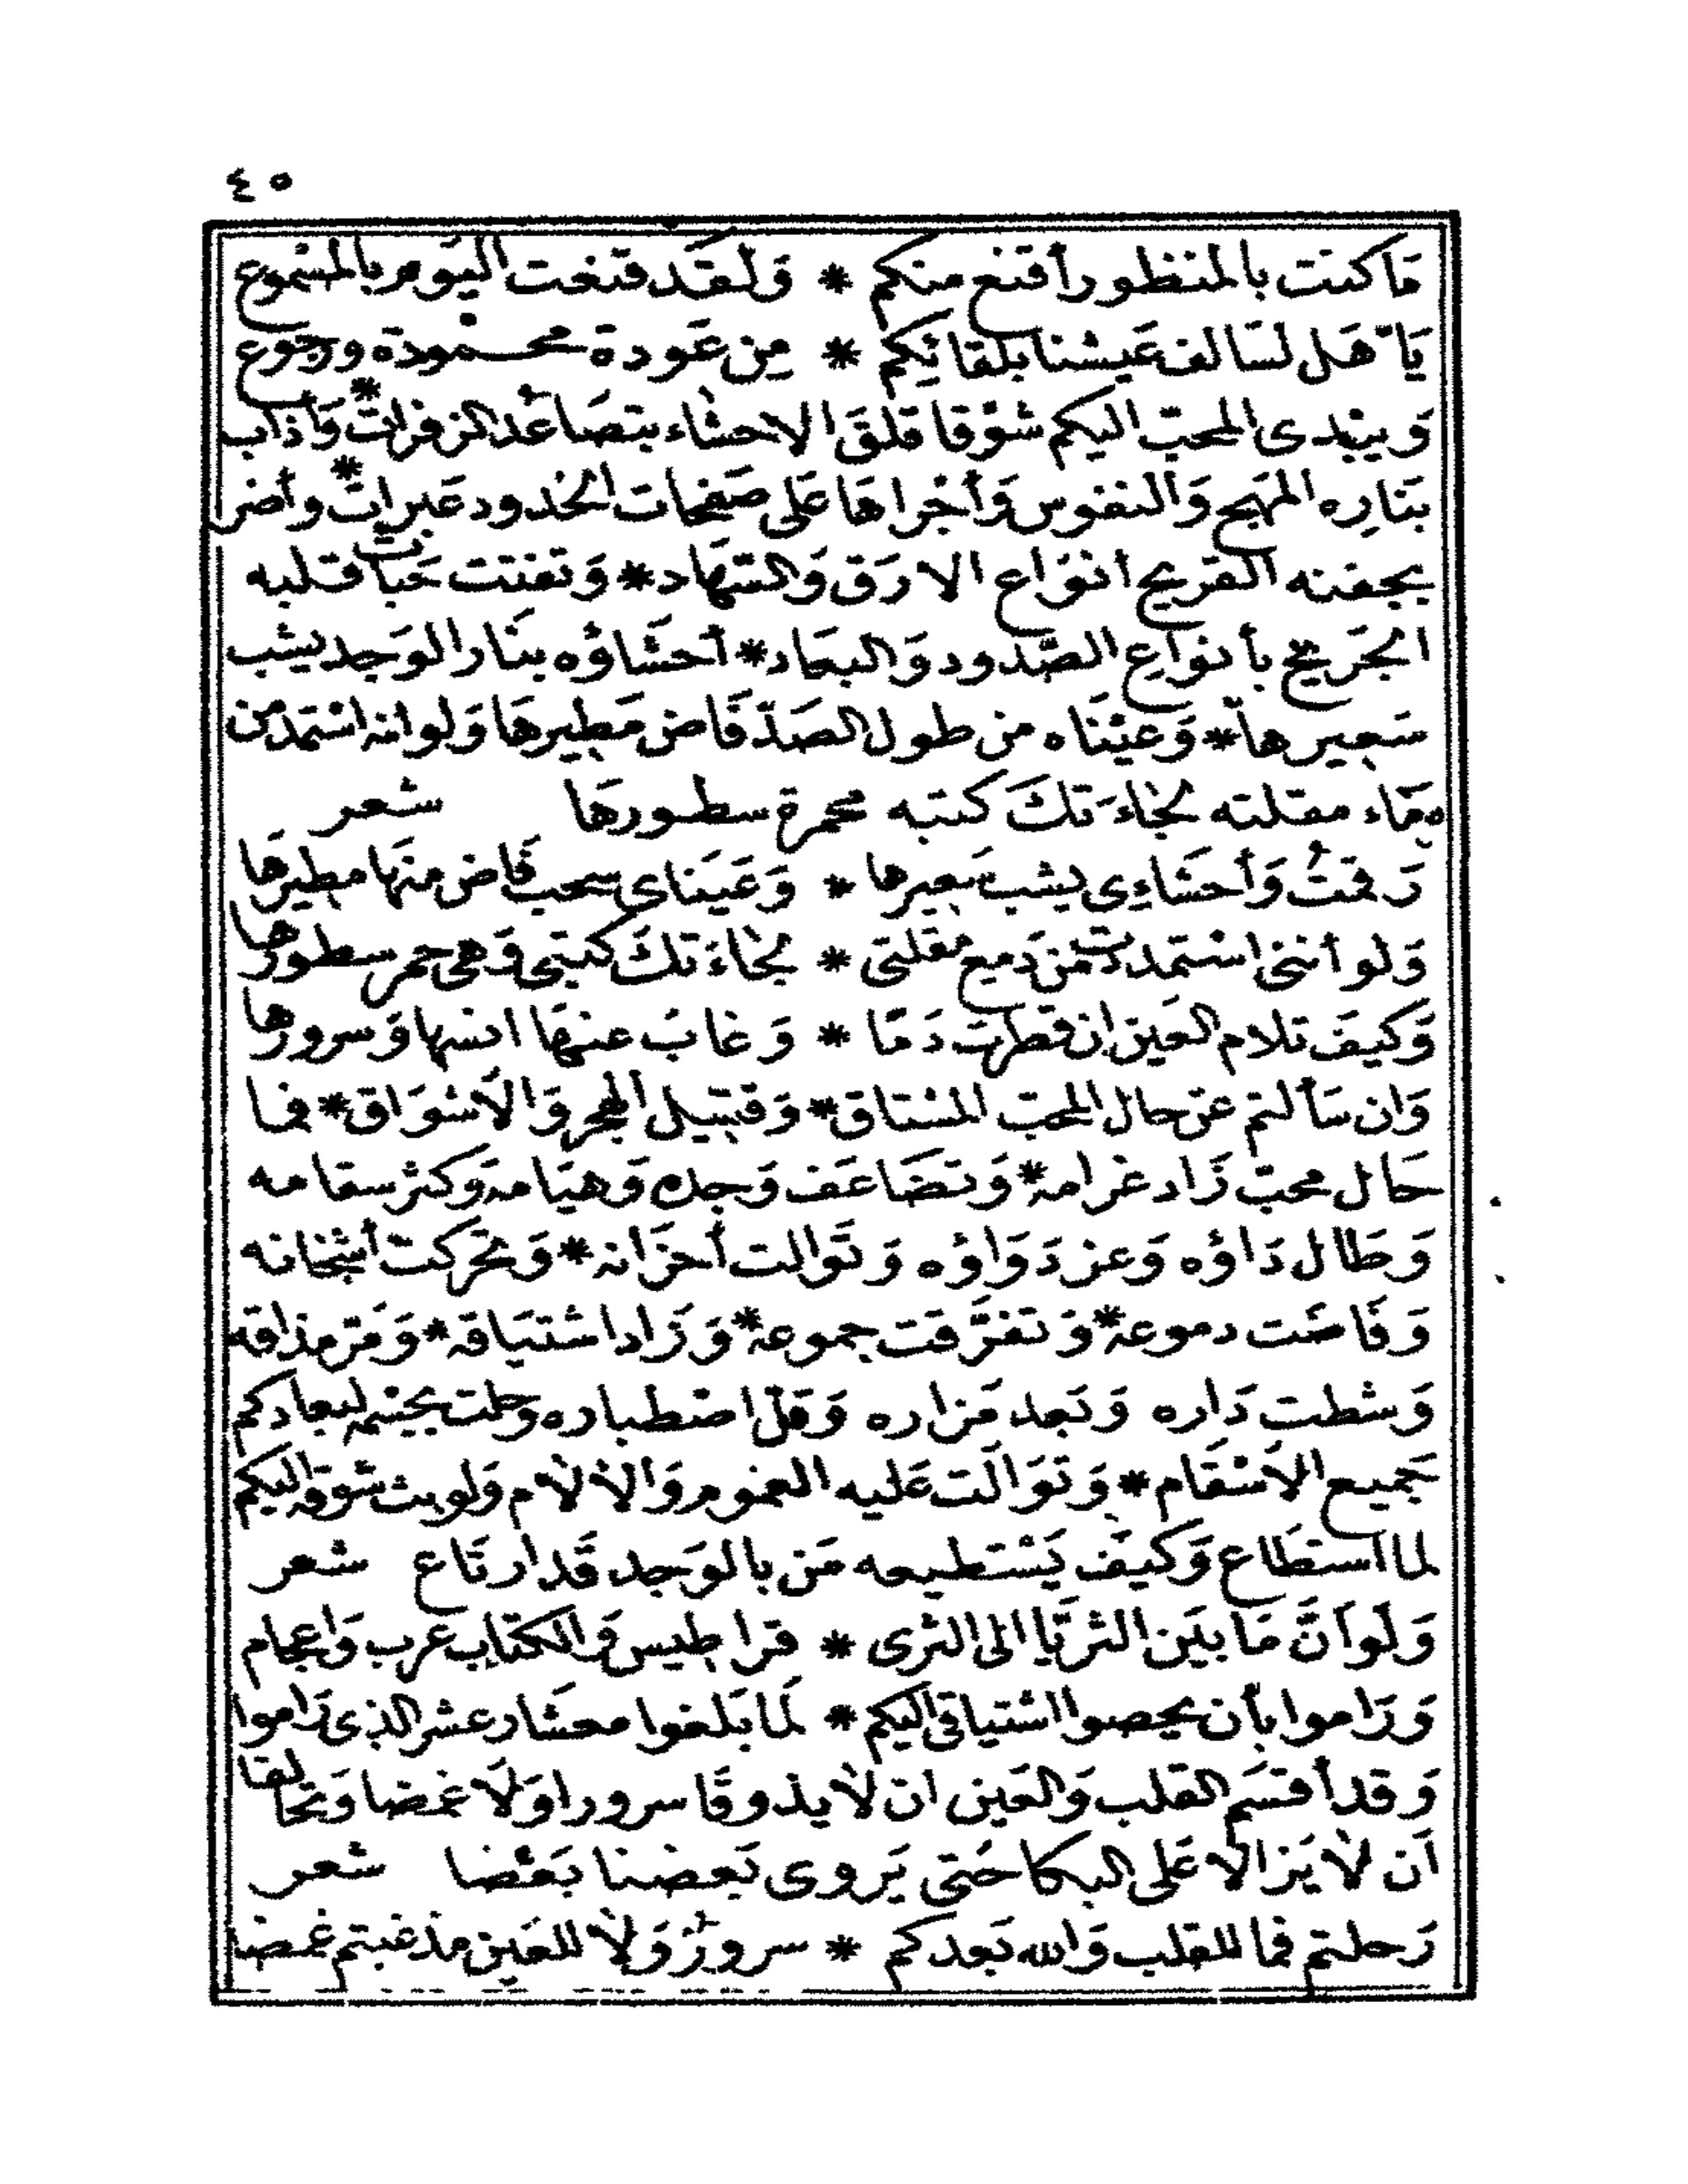 ٤٥
مَا كنت بالمنظور أقنع منكم * وَلقَد قنعت اليَوم بالمسْموع
يَا هَل لسَالف عَيشنا بلقائِكم * مِن عَودة محمودة ورجوع
وَيبْدى المحبّ اليكم شوْقا قلقَ الاحشاء بتصَاعُد الزفرات * وَأذاب
بنَارِه المهَج وَالنفوس وَأجْراهَا عَلى صَفحات الخدود عَبرات * وأضر
بجفنه القريح أنوَاع الارَق وَالسّهَاد * وَتفتت حَبات قلبه
الجَريح بأنواع الصّدود وَالبعَاد * أحشَاؤه بنَار الوَجد يشب
سَعِيرها * وَعيْنَاه من طول الصَدّ فَاض مَطِيرهَا وَلو انه اسْتمد من
مَاء مقلته لجَاءَتكَ كتبه محمرة سطورهَا شعر
رَقمتُ وَأحشَاءِى يشب سَعِيرها * وَعَينَاى سحب فَاض منهَا مطيرهَا
وَلو أننى اسْتمددت من دَمع مقلتى * لجَاءَتكَ كتبى وَهى حمر سطورها
وَكيفَ تلام العَين ان قطرَت دَمًا * وَغابَ عنهَا انسها وَسرورها
وَان سَألتم عَن حال المحبّ المشتاق * وَقتيل الهجر وَالأشوَاق * فما
حَال محبّ زَاد غرامه * وَتضَاعَف وَجده وَهيَامه وَكثر سقامه
وَطَال دَاؤه وَعز دَوَاؤه وَتوَالت أحزَانه * وَتحركت أشجانه
وَفَاضَت دموعه * وَتفرَّقت جموعه * وَزَاد اشتيَاقه * وَمَرّ مذاقه
وَشطت دَاره وَبَعد مَزاره وَقلّ اصْطباره وَحلت بجسْمه لبعادكم
بجَميع الأسْقَام * وَتوَالَت عَليه الغموم وَالاٰلام وَلو بث شوقه اليكم
لما استطَاع وَكيفَ يَسْتطيعه مَن بالوَجد قَد ارتَاع شعر
وَلَو أنَّ مَا بَيَن الثريَّا الى الثرى * قراطيس وَالكتاب عرب وَاعجام
وَرَاموا بأن يحصوا اشتياقى اليكم * لَما بَلغوا معشَار عشر الذى رَاموا
وَقد أقسَم القلب وَالعَين ان لاٰ يذوقَا سرورا وَلَا غمضا وَتحَالفا
أن لاٰ يَزالا عَلى البكا حَتى يَروى بَعضنا بَعْضا شعر
رَحلتم فما للقلب وَالله بَعدكم * سرورٌ وَلاٰ للعَين مذ غبتم غمضا